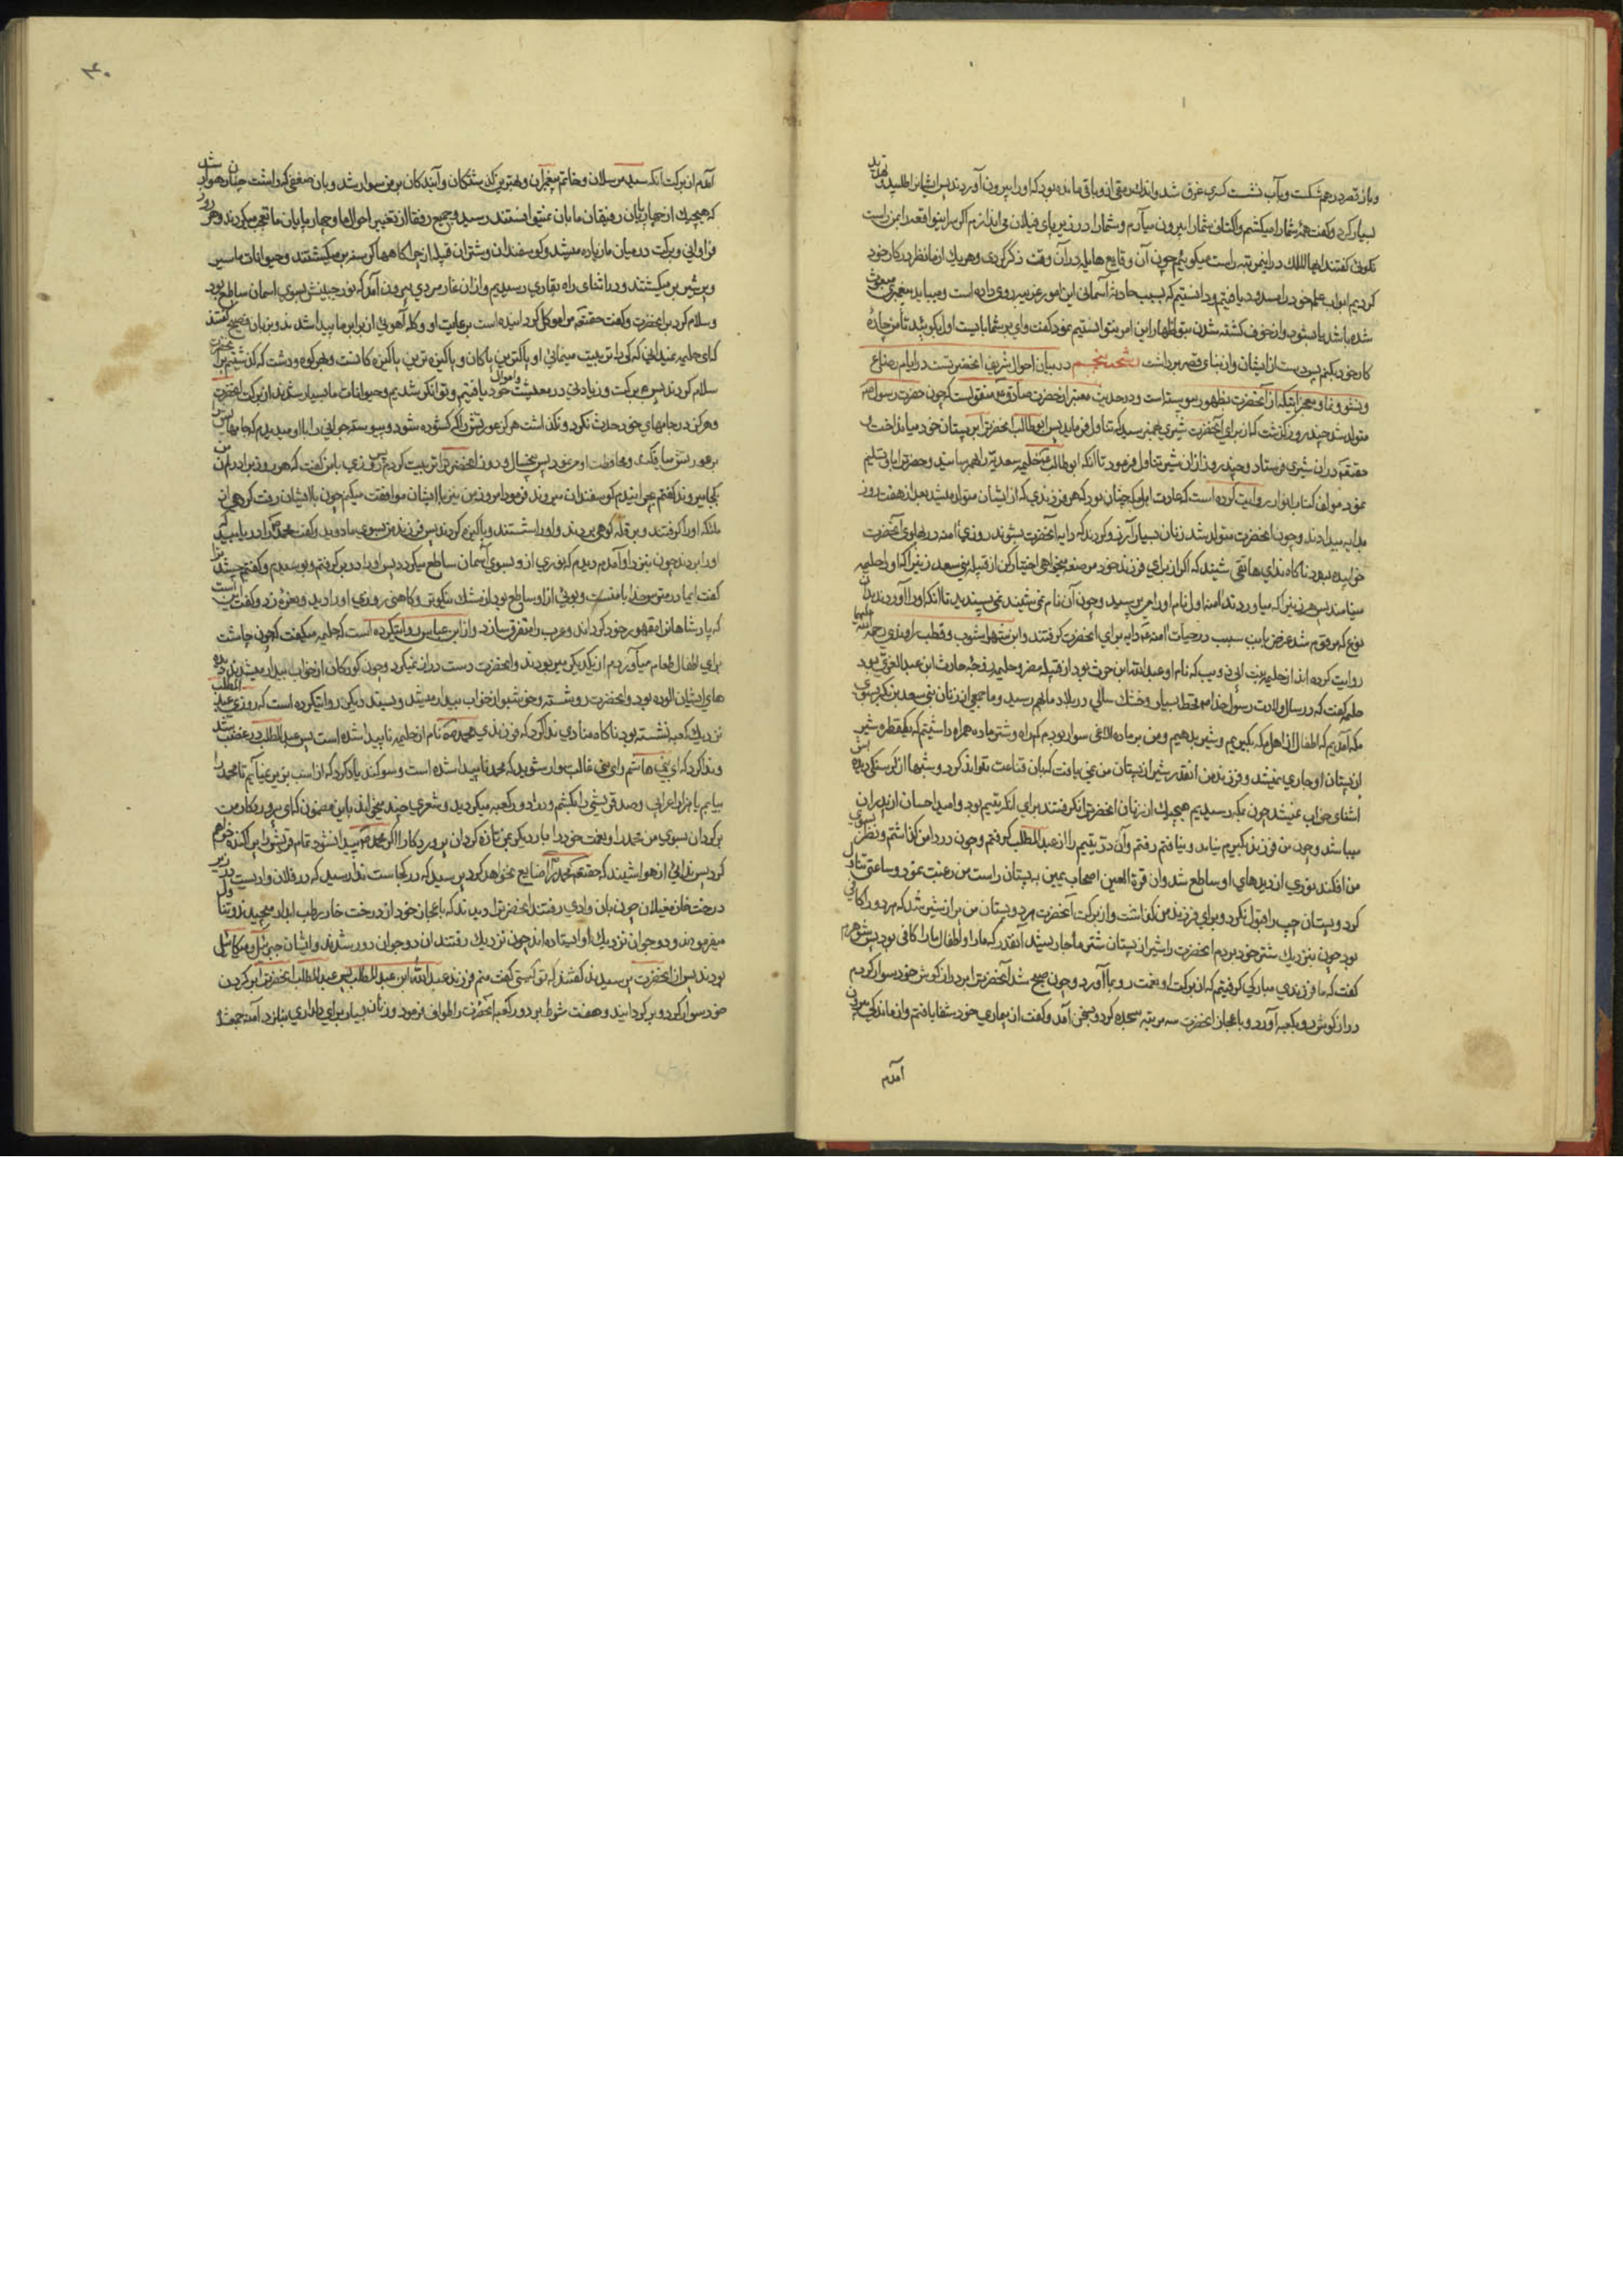 و باز قصر در هم شکست و بآب نشست کسری غرق شد و اندک رمقی از و باقی مانده بود که او را بیرون آوردند پس ایشانرا طلبید و تهدید
بسیار کرد و گفت همهٔ شما را میکشم و اکتاف شما را بیرون میآرم و شما را در زیر پای فیلان می اندازم اگر مرا بنواقعه راه راست
نکوئی گفتند ایها الملک در این مرتبه راست میکوئیم چون آن وقایع هایله در آن وقت ذکر کردی و هر یک از ما نظر در کار خود
کردیم ابواب علم خود را مسدود یافتیم و دانستیم که بسبب حادثهٔ آسمانی این امور غریبه روی داده است و میباید پیغمبری مبعوث
شده باشد یا بشود و از خوف کشته شدن بتو اظهار این امر نتوانستیم نمود گفت وای بر شما بایست اول بگوئید تا من چارهٔ
کار خود بکنم پس دست از ایشان و از بنای قصر برداشت رشحهٔ پنجم در بیان احوال شریف آنحضرتست در ایام رضاع
و نشو و نما و معجزاتیکه از آنحضرت بظهور پیوسته است و در حدیث معتبر از حضرت صادق ع منقولست که چون حضرت رسول ص
متولد شد چند روز گذشت که از برای آنحضرت شیری بهم نرسید که تناول فرماید پس ابو طالب آنحضرترا بر پستان خود میانداخت و
حقتعالی در ان شیری فرستاد و چند روز از ان شیر تناول فرمود تا آنکه ابو طالب حلیمه سعدیه را بهم رسانید و حضرترا باو تسلیم
نمود مولف کتاب انوار روایت کرده است که عادت اهل مکه چنان بود که هر فرزندی که از ایشان متولد میشد بعد از هفت روز
بدایه میدادند و چون آنحضرت متولد شد زنان بسیار آرزو کردند که دایه آنحضرت بشوند روزی آمنه در پهلوی آنحضرت
خوابیده بود ناکاه ندای هاتفی شنید که اگر از برای فرزند خود مرضعه میخواهی اختیار کن از قبیله بنی سعد زنیرا که او را حلیمه
مینامند پس هر زنی را که میاوردند آمنه اول نام او را می پرسید و چون آن نام نمی شنید نمی پسندید تا آنکه او را آوردند بدان
نوع که مرقوم شد غرض باین سبب در حیات آمنه دایه برای آنحضرت گرفتند و ابن شهر اشوب و قطب راوندی رحمة الله علیهما
روایت کرده اند از حلیمه بنت ابی ذویب که نام او عبد الله ابن حرث بود از قبیله مضر و حلیمه زوجهٔ حارث ابن عبد العزی بود
حلیمه گفت که در سال ولادت رسول خدا ص قحط بسیار و خشک سالی در بلاد ما بهم رسید و ما جمعی از زنان بنی سعد بن بکر بسوی
مکه آمدیم که اطفال از اهل مکه بگیریم و شیر بدهیم و من بر ماده الاغی سوار بودم کم راه و شتر ماده همراه داشتیم که یکقطره شیر
از پستان او جاری نمیشد و فرزند من آنقدر شیر از پستان من نمی یافت که بان قناعت تواند کرد و شبها از گرسنگی دیده اش
اشنای خواب نمیشد چون بمکه رسیدیم هیچیک از زنان آنحضرترا نکرفتند برای آنکه یتیم بود و امید احسان از پدران
میباشد و چون من فرزند بگیرم نیامد و نیافتم رفتم و آن در یتیم را از عبد المطلب گرفتم و چون در دامن گذاشتم و نظر بسوی
من افکند نوری از دیدهای او ساطع شد و آن قرة العین اصحاب یمین به پستان راست من رغبت نمود و ساعتی تناول
کرد و پستان چپ را قبول نکرد و برای فرزند من گذاشت و از برکت آنحضرت هر دو پستان من پر از شیر شد که هر دو را کافی
بود چون بنزدیک شتر خود بردم آنحضرت را شیر از پستان شتر ما جاری شد آنقدر که ما را و اطفال ما را کافی بود پس شوهرم
گفت که ما فرزندی مبارکی گرفتیم که از برکت او نعمت رو بما آورد و چون صبح شد آنحضرترا بر دراز گوش خود سوار کردم
دراز گوش رو بکعبه آورد و باعجاز آنحضرت سه مرتبه سجده کرد و بسخن آمد و گفت از بیماری خود شفا یافتم و از ماندگی بیرون
آمدم
۴۰
آمدم از برکت آنکه سید مرسلان و خاتم پیغمبران و بهترین گذشتگان و آیندگان بر من سوار شد و بان ضعفی که داشت چنان رهوار شد
که هیچیک از چهارپایان رفیقان ما بان نمیتوانستند رسید و جمیع رفقا از تغییر احوال ما و چهارپایان ما تعجب میکردند و هر روز
فراوانی و برکت در میان ما زیاده میشد و گوسفندان و شتران قبیله از چراکاهها گرسنه بر میگشتند و حیوانات ما سیر
و پر شیر بر میگشتند و در اثنای راه بغاری رسیدیم و از ان غار مردی بیرون آمد که نور جبینش بسوی اسمان ساطع بود
و سلام کرد بر آنحضرت و گفت حقتعالی مرا موکل گردانیده است برعایت او و کلهٔ آهوئی از برابر ما پیدا شدند و بزبان فصیح گفتند
که ای حلیمه نمیدانی که کرا تربیت مینمائی او پاکترین پاکان و پاکیزه ترین پاکیزه کانست و بهر کوه و دشت که گذشتیم بر آنحضرت
سلام کردند پس برکت و زیادتی در معیشت و اموال خود یافتیم و توانگر شدیم و حیوانات ما بسیار شدند از برکت آنحضرت
و هرگز در جامهای خود حدث نکرد و نگذاشت هرگز عورتش را که گشوده شود و پیوسته جوانی را با او میدیدم که جامهایش را
بر عورتش می افکند و محافظت او می نمود پس پنجسال و دو روز آنحضرترا تربیت کردم پس روزی با من گفت که هر روز برادران من
بکجا میروند گفتم بچرانیدن گوسفندان میروند فرمود امروز من نیز با ایشان موافقت میکنم چون با ایشان رفت گروهی از
ملائکه او را گرفتند و بر قلهٔ کوهی بردند و او را شستند و پاکیزه کردند پس فرزند من بسوی ما دوید و گفت محمد را دریابید که
او را بردند چون بنزد او آمدم دیدم که نوری از و بسوی آسمان ساطع میگردد پس او را در بر گرفتم و بوسیدم و گفتم چه شد ترا
گفت ایمادر مترس خدا با منست و بوئی از او ساطع بود از مشک نیکوتر و کاهنی روزی او را دید و نعره زد و گفت این است
که پادشاهانرا مقهور خود گرداند و عرب را متفرق سازد و از ابن عباس روایتکرده است که حلیمه میگفت که چون چاشت
برای اطفال طعام میآوردم از یکدیگر میربودند و آنحضرت دست دراز نمیکرد و چون کودکان از خواب بیدار میشدند دیده
های ایشان الوده بود و آنحضرت رو شسته و خوشبو از خواب بیدار میشد و بسند دیگر روایتکرده است که روزی عبد المطلب
نزدیک کعبه نشسته بود ناکاه منادی ندا کرد که فرزندی محمد نام از حلیمه ناپیدا شده است پس عبد المطلب در غضب شد
و ندا کرد که ای بنی هاشم و ای بنی غالب سوار شوید که محمد ناپیدا شده است و سوگند یاد کرد که از اسب بزیر نمیآیم تا محمد را
بیابم یا هزار اعرابی و صد قریشی را بکشم و در دور کعبه میگردید و شعری چند میخواند باین مضمون که ای پروردگار من
برگردان بسوی من محمد را و نعمت خود را بار دیگر بمن تازه گردان پروردگارا اگر محمد پیدا نشود تمام قریش را پراکنده خواهم
کرد پس ندائی از هوا شنید که حقتعالی محمد را ضایع نخواهد کرد پرسید که در کجاست ندا رسید که در فلان وادیست در زیر
درخت خار مغیلان چون بان وادی رفتند آنحضرترا دیدند که باعجاز خود از درخت خار رطب ابدار میچیند و تناول
میفرموند و دو جوان نزدیک او ایستاده اند چون نزدیک رفتند ان دو جوان دور شدند و ایشان جبرئیل و میکائیل
بودند پس از آنحضرت پرسیدند گفتند که تو کیستی گفت منم فرزند عبد الله ابن عبد المطلب پس عبد المطلب آنحضرترا بر گردن
خود سوار کرد و برگردانید و هفت شوط بر دور کعبه آنحضرت را طواف فرمود و زنان بسیار برای دلداری بنزد آمنه جمع شده